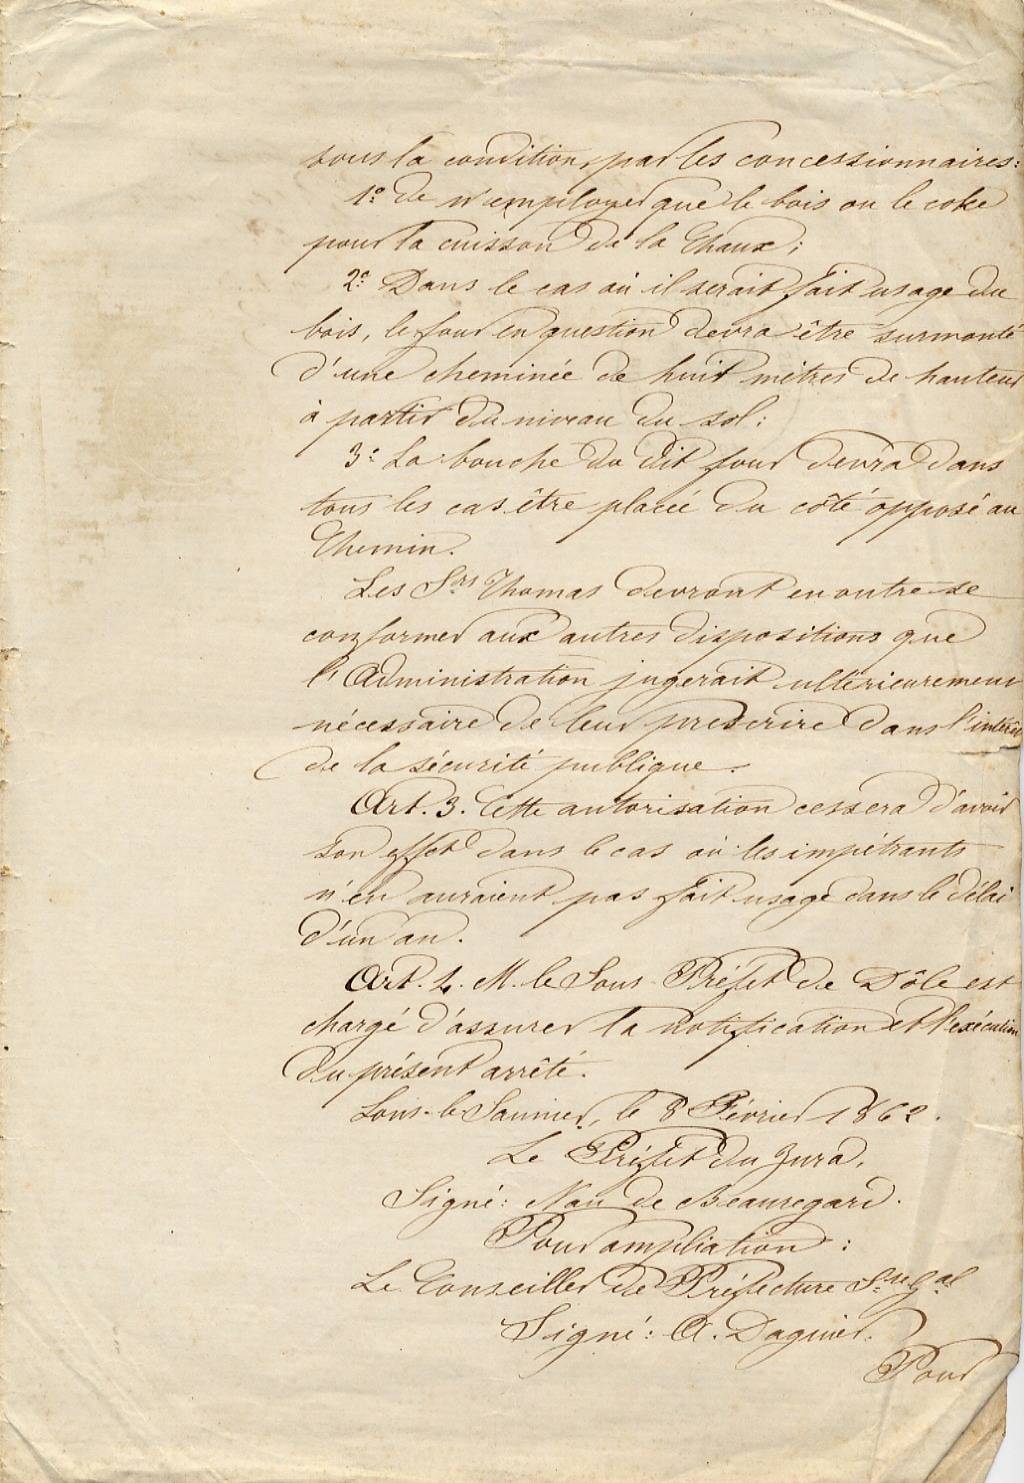 sous la condition, par les concessionnaires:
1° de n'employer que le bois ou le coke
pour la cuisson de la Chaux;
2° Dans le cas où il serait fait usage du
bois, le four en question devra être surmonté
d'une cheminée de huit mètres de hauteur
à partir du niveau du sol;
3° La bouche du dit four devra dans
tous les cas être placée du côté opposé au
Chemin.
Les Srs Thomas devront en outre se
conformer aux autres dispositions que
l'Administration jugerait ultérieurement
nécessaire de leur prescrire dans l'intérêt
de la sécurité publique.
Art. 3. Cette autorisation cessera d'avoir
son effet dans le cas où les impétrants
n'en auraient pas fait usage dans le délai
d'un an.
Art. 4. M. le Sous-Préfet de Dôle est
chargé d'assurer la notification et l'exécution
du présent arrêté.
Lons-le-Saunier, le 8 Février 1862.
Le Préfet du Jura,
Signé: Nau de Beauregard.
Pour ampliation:
Le Conseiller de Préfecture Sre Gal
Signé: A. Daguier.
Pour